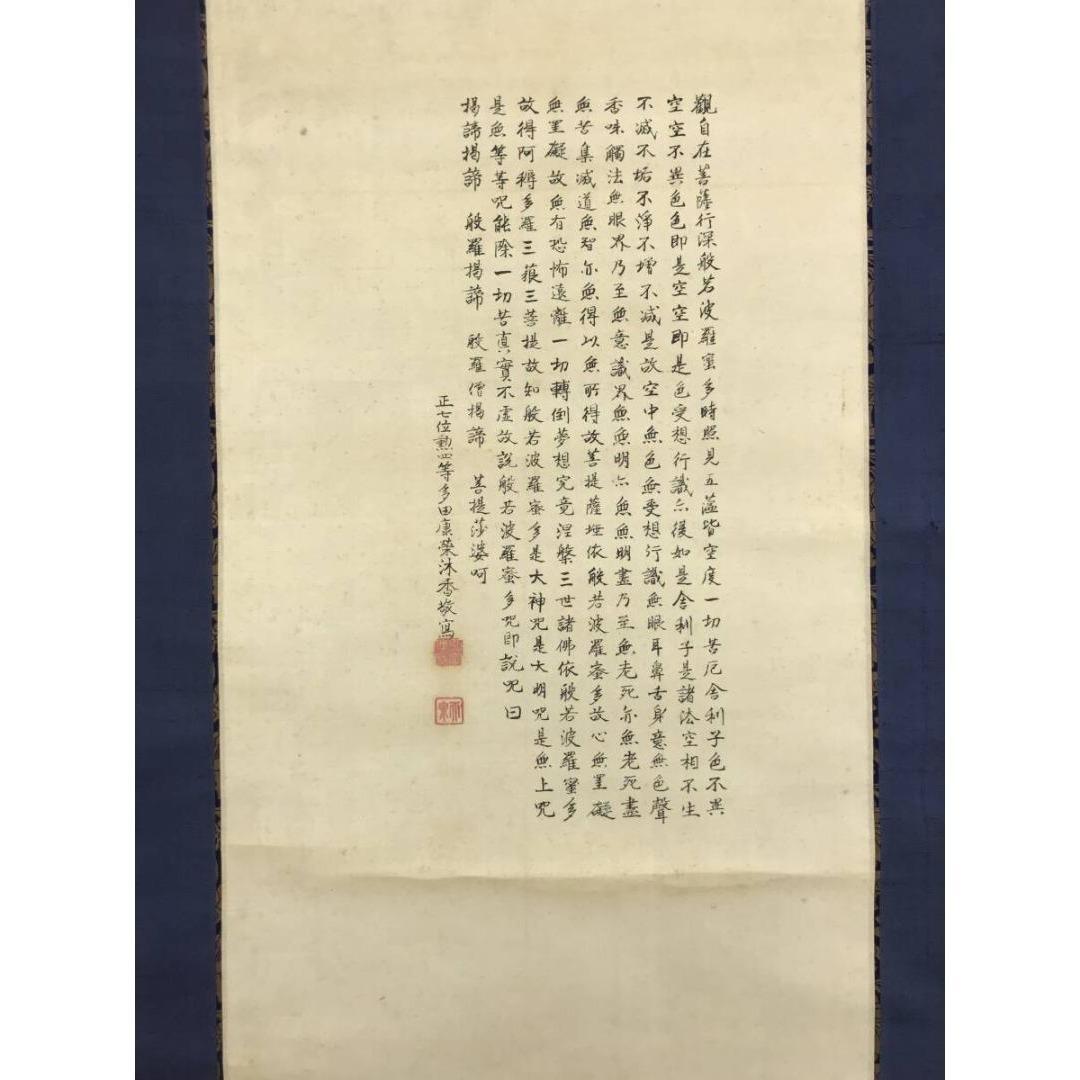 觀自在菩薩行深般若波羅蜜多時照見五蘊皆空度一切苦厄舍利子色不異
空空不異色色即是空空即是色受想行識亦復如是舍利子是諸法空相不生
不滅不垢不淨不增不減是故空中無色無受想行識無眼耳鼻舌身意無色聲
香味觸法無眼界乃至無意識界無無明亦無無明盡乃至無老死亦無老死盡
無苦集滅道無智亦無得以無所得故菩提薩埵依般若波羅蜜多故心無罣礙
無罣礙故無有恐怖遠離一切轉倒夢想究竟涅槃三世諸佛依般若波羅蜜多
故得阿耨多羅三藐三菩提故知般若波羅蜜多是大神咒是大明咒是無上咒
是無等等咒能除一切苦真實不虛故說般若波羅蜜多咒即說咒曰
揭諦揭諦 般羅揭諦 般羅僧揭諦 菩提莎婆呵
正七位勲四等多田廣榮沐香敬寫